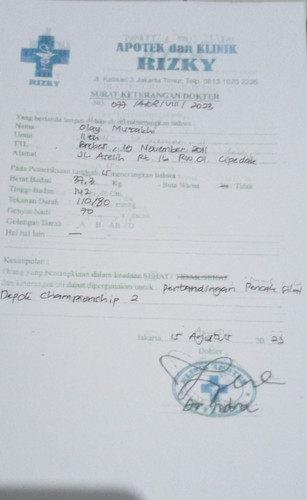 APOTEK dan KLINIK
RIZKY
RIZKY
Jl. Kalisari 3 Jakarta Timur, Telp.
SURAT KETERANGAN DOKTER
NO. 077 / /VIII / 2023
Yang bertanda tangan dibawah ini menerangkan bahwa :
Nama Olay Mutakhi
Umur 11 th
TTL Brebes, 10 November 2011
Alamat Jl. Rt. 16 RW 01 Cipedak
Pada Pemeriksaan tanggal 15 menerangkan bahwa :
Berat Badan 37,3 Kg Buta Warna Ya Tidak
Tinggi Badan 142 Cm
Tekanan Darah 110/80
Denyut Nadi 90
Golongan Darah A B AB O
Hal hal lain
Kesimpulan
Orang yang bersangkutan dalam keadaan SEHAT / TIDAK SEHAT
dan keterangan ini dapat dipergunakan untuk pertandingan Pencak Silat
Depok Championship 2
Jakarta, 15 Agustus 20 23
Dokter